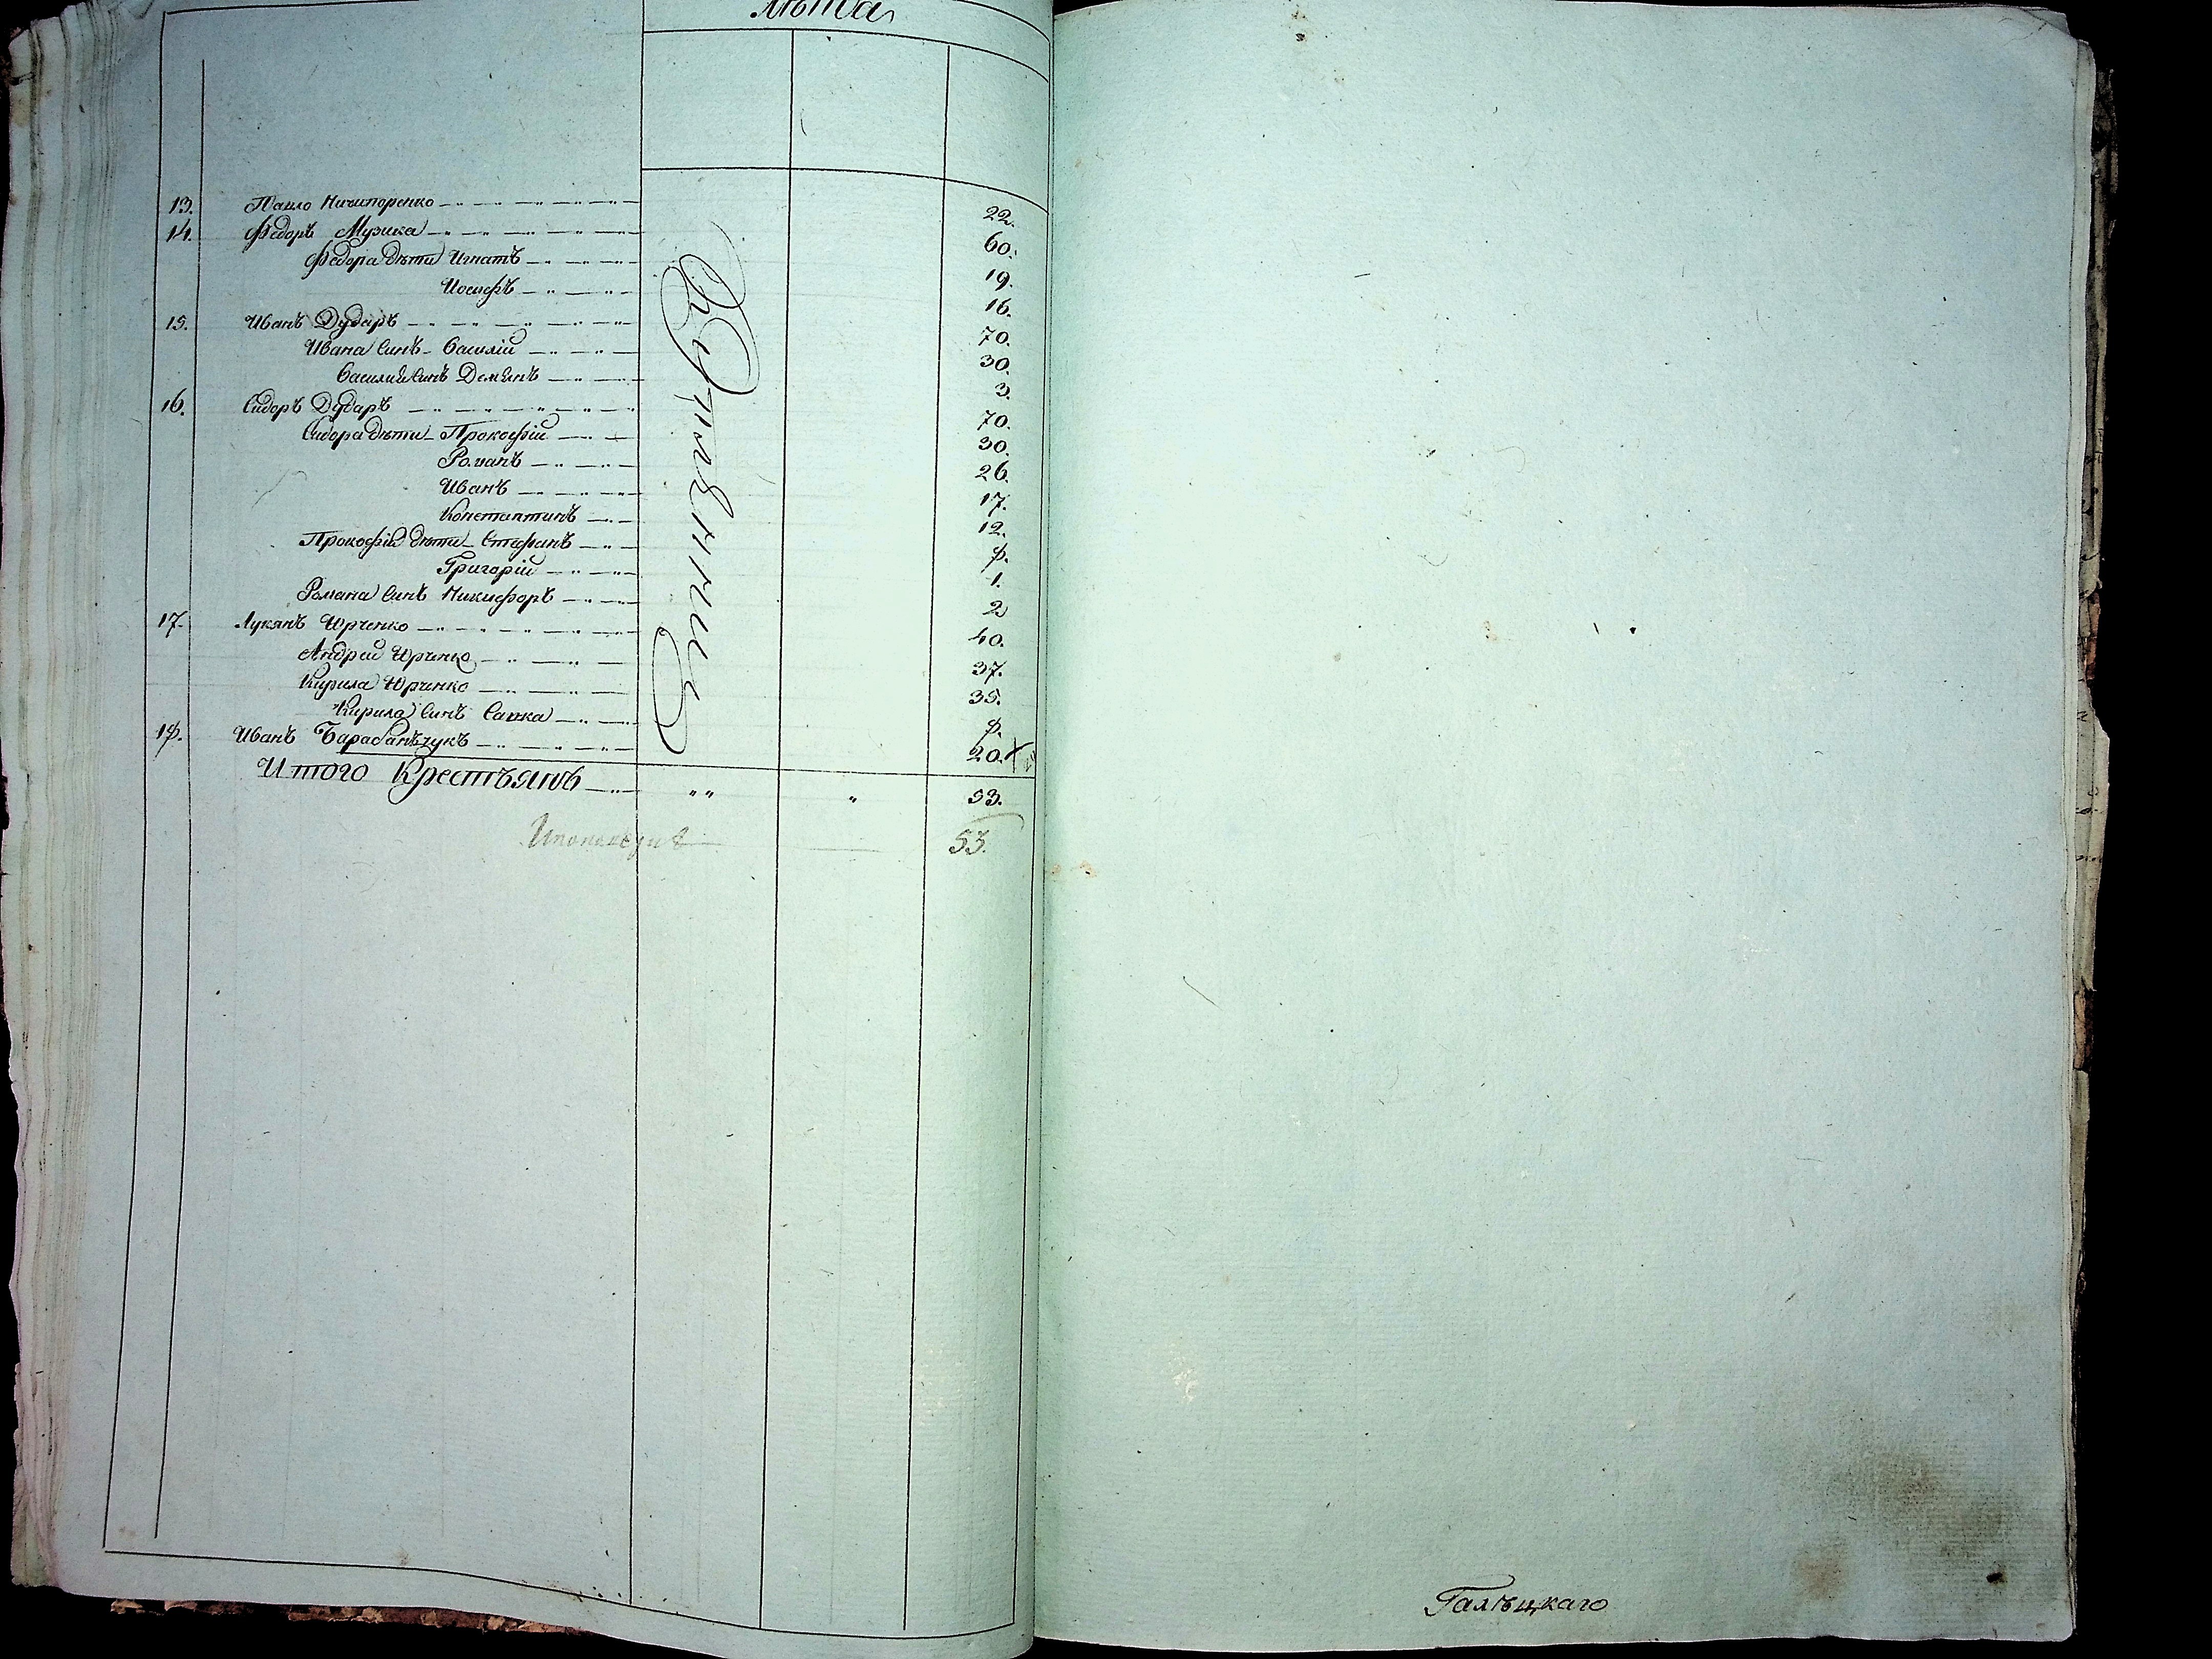 лѣта
13. Павло Ничипоренко 22.
14. Федоръ Музика 60.
Федора дѣти Игнатъ 19.
Иосифъ 16.
15. Иванъ Дударъ 70.
Ивана Синъ Василий 30.
Василия Синъ Демянъ 3.
16. Сидоръ Дударъ 70.
Сидора дѣти Прокофій 30.
Романъ 26.
Иванъ 17.
Константинъ 12.
Прокофія дѣти Стефанъ 8.
Григорій 1.
Романа Синъ Никифоръ 2
17. Лукянъ Юрченко 40.
Андрей Юрченко 37.
Кирила Юрченко 35.
Кирила Синъ Савка 8.
18. Иванъ Барабанъчукъ 20.
Итого Крестъянъ „ „ „ 53.
53.
Галъцкаго